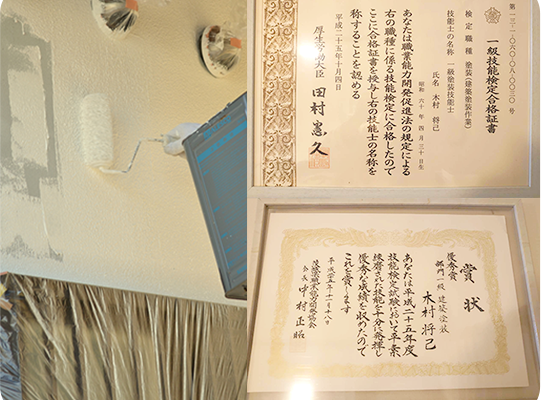 第一三-一-〇六〇-〇八-〇〇三〇号
一級技能検定合格証書
検定職種 塗装(建築塗装作業)
技能士の名称 一級塗装技能士
氏名 木村 将己
昭和 六十年 四月 三十日生
あなたは職業能力開発促進法の規定による
右の職種に係る技能検定に合格したので
ここに合格証書を授与し右の技能士の名称を
称することを認める
平成二十五年十月四日
厚生労働大臣 田村憲久
賞状
優秀賞
部門一級 建築塗装
木村将己
あなたは平成二十五年度
技能検定試験において平素
練磨された技能を十分に発揮し
優秀な成績を収めたので
これを賞します
平成二十五年十一月十八日
茨城県職業能力開発協会
会長 中村正昭